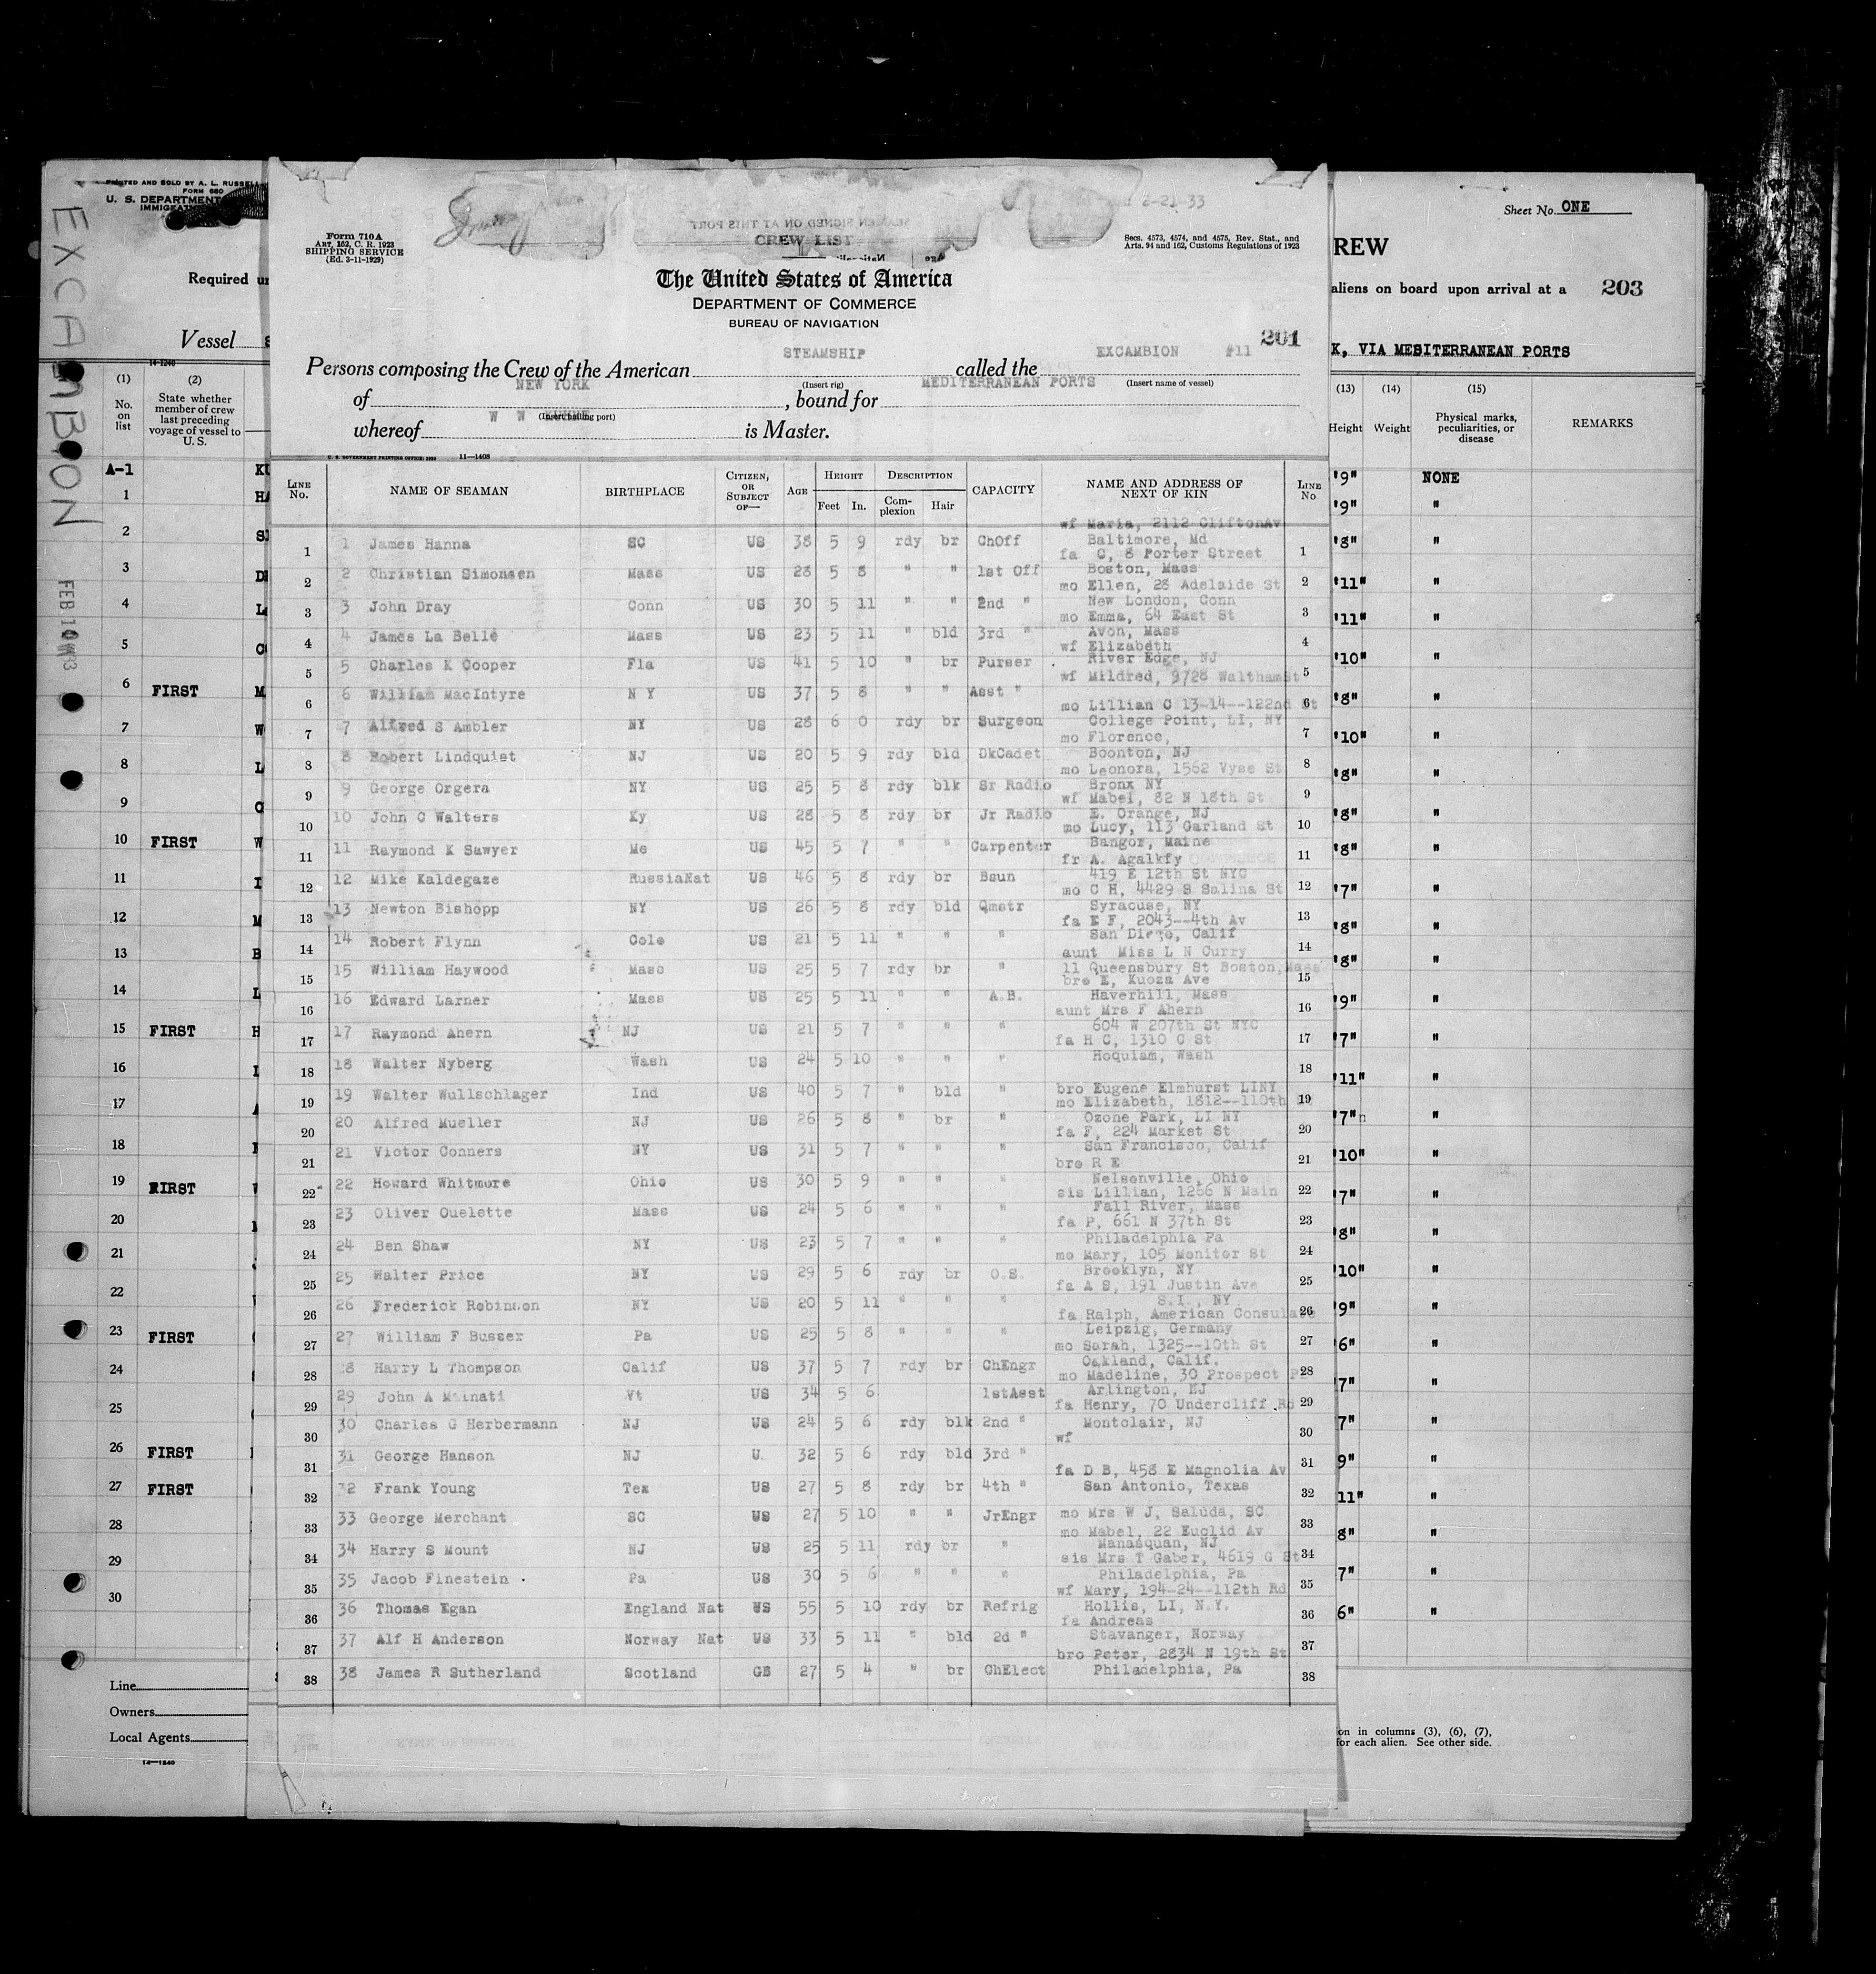 PRINTED AND SOLD BY A. L. RUSSELL
FORM 680
U. S. DEPARTMENT
IMMIGRAT
EXCAMBION
Required un
Vessel
14-1240
(1) (2)
No. on list
State whether member of crew last preceding voyage of vessel to U. S.
A-1 KU
1 HA
2
3
4
5
6 FIRST M
7 W
8 L
9
10 FIRST W
11 I
12 M
13 B
14 L
15 FIRST H
16
17
18
19 FIRST
20
21
22
23 FIRST
24
25
26 FIRST
27 FIRST
28
29
30
Line
Owners
Local Agents
14-1240
2-21-33
SEAMEN SIGNED ON AT THIS PORT
Form 710A
ART. 162, C. R. 1923
SHIPPING SERVICE
(Ed. 3-11-1929)
CREW LIST
Secs. 4573, 4574, and 4575, Rev. Stat., and
Arts. 94 and 162, Customs Regulations of 1923
The United States of America
DEPARTMENT OF COMMERCE
BUREAU OF NAVIGATION
201
STEAMSHIP EXCAMBION #11
Persons composing the Crew of the American called the
(Insert rig) (Insert name of vessel)
NEW YORK MEDITERRANEAN PORTS
of , bound for
W W (Insert hailing port)
whereof is Master.
U. S. GOVERNMENT PRINTING OFFICE: 11-1408
LINE No. NAME OF SEAMAN BIRTHPLACE CITIZEN, OR SUBJECT OF— AGE HEIGHT Feet In. DESCRIPTION Complexion Hair CAPACITY NAME AND ADDRESS OF NEXT OF KIN LINE No
wf Maria, 2112 CliftonAv
1 1 James Hanna SC US 38 5 9 rdy br ChOff Baltimore, Md 1
fa C, 8 Porter Street
2 2 Christian Simonsen Mass US 28 5 8 " " 1st Off Boston, Mass 2
mo Ellen, 28 Adelaide St
3 3 John Dray Conn US 30 5 11 " " 2nd " New London, Conn 3
mo Emma, 64 East St
4 4 James La Belle Mass US 23 5 11 " bld 3rd " Avon, Mass 4
wf Elizabeth
5 5 Charles K Cooper Fla US 41 5 10 " br Purser River Edge, NJ 5
wf Mildred, 9728 WalthamSt
6 6 William MacIntyre N Y US 37 5 8 " " Asst " 6
mo Lillian C 13-14--122nd St
7 7 Alfred S Ambler NY US 28 6 0 rdy br Surgeon College Point, LI, NY 7
mo Florence,
8 8 Robert Lindquist NJ US 20 5 9 rdy bld DkCadet Boonton, NJ 8
mo Leonora, 1562 Vyse St
9 9 George Orgera NY US 25 5 8 rdy blk Sr Radio Bronx NY 9
wf Mabel, 82 N 18th St
10 10 John C Walters Ky US 28 5 8 rdy br Jr Radio E. Orange, NJ 10
mo Lucy, 113 Garland St
11 11 Raymond K Sawyer Me US 45 5 7 " " Carpenter Bangor, Maine 11
fr A. Agalkfy
12 12 Mike Kaldegaze RussiaNat US 46 5 8 rdy br Bsun 419 E 12th St NYC 12
mo C H, 4429 S Salina St
13 13 Newton Bishopp NY US 26 5 8 rdy bld Qmstr Syracuse, NY 13
fa E F, 2043--4th Av
14 14 Robert Flynn Colo US 21 5 11 " " " San Diego, Calif 14
aunt Miss L N Curry
15 15 William Haywood Mass US 25 5 7 rdy br " 11 Queensbury St Boston, Mass 15
bro E, Kuoza Ave
16 16 Edward Larner Mass US 25 5 11 " " A.B. Haverhill, Mass 16
aunt Mrs F Ahern
17 17 Raymond Ahern NJ US 21 5 7 " " " 604 W 207th St NYC 17
fa H C, 1310 C St
18 18 Walter Nyberg Wash US 24 5 10 " " " Hoquiam, Wash 18
19 19 Walter Wullschlager Ind US 40 5 7 " bld " bro Eugene Elmhurst LINY 19
mo Elizabeth, 1812--110th
20 20 Alfred Mueller NJ US 26 5 8 " br " Ozone Park, LI NY 20
fa F, 224 Market St
21 21 Victor Conners NY US 31 5 7 " " " San Francisco, Calif 21
bro R E
22 22 Howard Whitmore Ohio US 30 5 9 " " " Nelsonville, Ohio 22
sis Lillian, 1266 N Main
23 23 Oliver Ouelette Mass US 24 5 6 " " " Fall River, Mass 23
fa P, 661 N 37th St
24 24 Ben Shaw NY US 23 5 7 " " " Philadelphia Pa 24
mo Mary, 105 Monitor St
25 25 Walter Price NY US 29 5 6 rdy br O.S. Brooklyn, NY 25
fa A S, 191 Justin Ave
26 26 Frederick Robinson NY US 20 5 11 " " " S.I., NY 26
fa Ralph, American Consulate
27 27 William F Busser Pa US 25 5 8 " " " Leipzig, Germany 27
mo Sarah, 1325--10th St
28 28 Harry L Thompson Calif US 37 5 7 rdy br ChEngr Oakland, Calif. 28
mo Madeline, 30 Prospect
29 29 John A Vt US 34 5 6 1stAsst Arlington, NJ 29
fa Henry, 70 Undercliff Rd
30 30 Charles G Herbermann NJ US 24 5 6 rdy blk 2nd " Montclair, NJ 30
wf
31 31 George Hanson NJ U. 32 5 6 rdy bld 3rd " 31
fa D B, 458 E Magnolia Av
32 32 Frank Young Tex US 27 5 8 rdy br 4th " San Antonio, Texas 32
33 33 George Merchant SC US 27 5 10 " " JrEngr mo Mrs W J, Saluda, SC 33
mo Mabel, 22 Euclid Av
34 34 Harry S Mount NJ US 25 5 11 rdy br " Manasquan, NJ 34
sis Mrs T Gaber, 4619 G St
35 35 Jacob Finestein Pa US 30 5 6 " " " Philadelphia, Pa 35
wf Mary, 194-24--112th Rd
36 36 Thomas Egan England Nat US 55 5 10 rdy br Refrig Hollis, LI, N.Y. 36
fa Andreas
37 37 Alf H Anderson Norway Nat US 33 5 11 " bld 2d " Stavanger, Norway 37
bro Peter, 2834 N 19th St
38 38 James R Sutherland Scotland GB 27 5 4 " br ChElect Philadelphia, Pa 38
Sheet No. ONE
REW
aliens on board upon arrival at a 203
K, VIA MEDITERRANEAN PORTS
(13) (14) (15)
Height Weight Physical marks, peculiarities, or disease REMARKS
'9" NONE
'9" "
'8" "
'11" "
'11" "
'10" "
'8" "
'10" "
'8" "
'8" "
'8" "
'7" "
'8" "
'8" "
'9" "
'7" "
'11" "
'7" "
'10" "
'7" "
'8" "
'10" "
'9" "
'6" "
'7" "
7" "
9" "
11" "
8" "
7" "
6" "
on in columns (3), (6), (7),
for each alien. See other side.